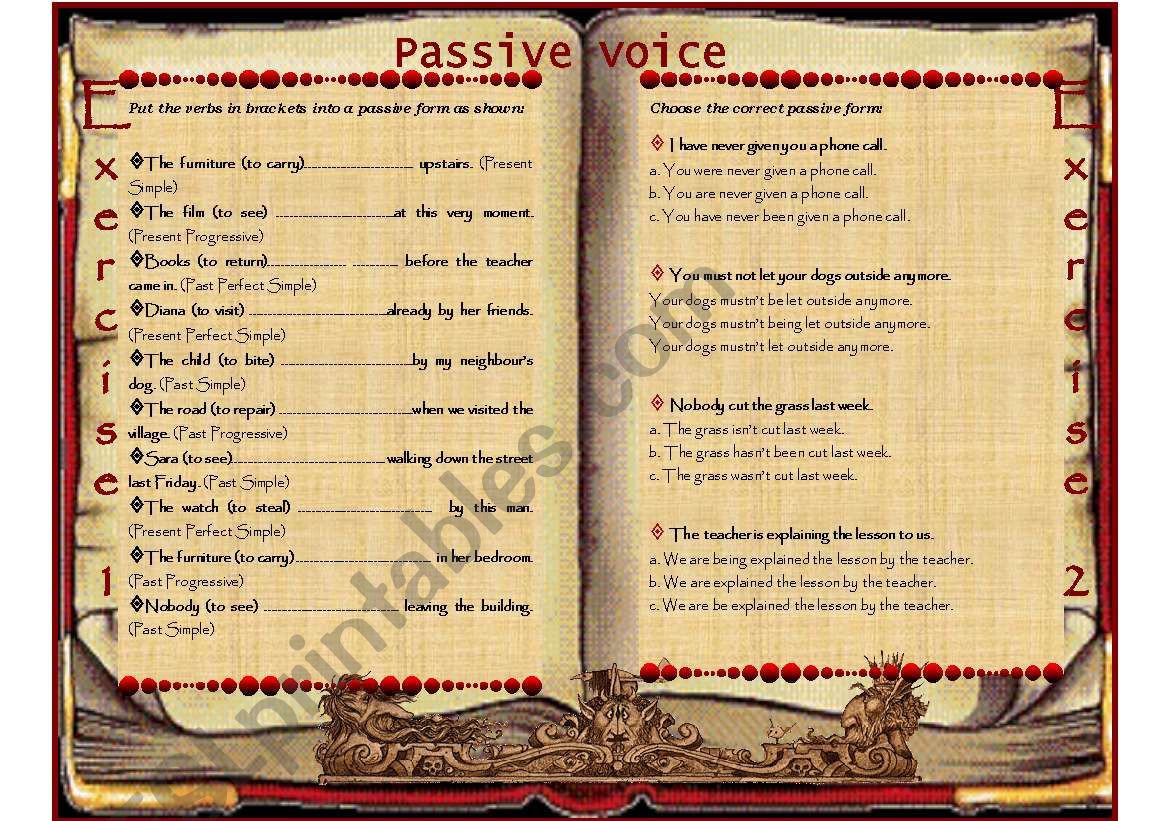 Passive voice
Exercise 1
Put the verbs in brackets into a passive form as shown:
The furniture (to carry)........................... upstairs. (Present
Simple)
The film (to see) .............................at this very moment.
(Present Progressive)
Books (to return)................... .......... before the teacher
came in. (Past Perfect Simple)
Diana (to visit) ..................................already by her friends.
(Present Perfect Simple)
The child (to bite) ................................by my neighbour's
dog. (Past Simple)
The road (to repair) .................................when we visited the
village. (Past Progressive)
Sara (to see)..................................... walking down the street
last Friday. (Past Simple)
The watch (to steal) ................................. by this man.
(Present Perfect Simple)
The furniture (to carry)................................. in her bedroom.
(Past Progressive)
Nobody (to see) ................................. leaving the building.
(Past Simple)
Exercise 2
Choose the correct passive form:
I have never given you a phone call.
a. You were never given a phone call.
b. You are never given a phone call.
c. You have never been given a phone call.
You must not let your dogs outside anymore.
Your dogs mustn't be let outside anymore.
Your dogs mustn't being let outside anymore.
Your dogs mustn't let outside anymore.
Nobody cut the grass last week.
a. The grass isn't cut last week.
b. The grass hasn't been cut last week.
c. The grass wasn't cut last week.
The teacher is explaining the lesson to us.
a. We are being explained the lesson by the teacher.
b. We are explained the lesson by the teacher.
c. We are be explained the lesson by the teacher.
eslprintables.com